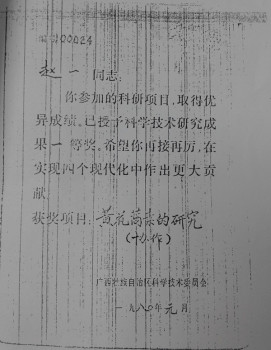 编号00024
赵一 同志：
你参加的科研项目，取得优
异成绩，已授予科学技术研究成
果一等奖。希望你再接再厉，在
实现四个现代化中作出更大贡
献。
获奖项目：黄花蒿素的研究
（协作）
广西壮族自治区科学技术委员会
一九八〇年元月